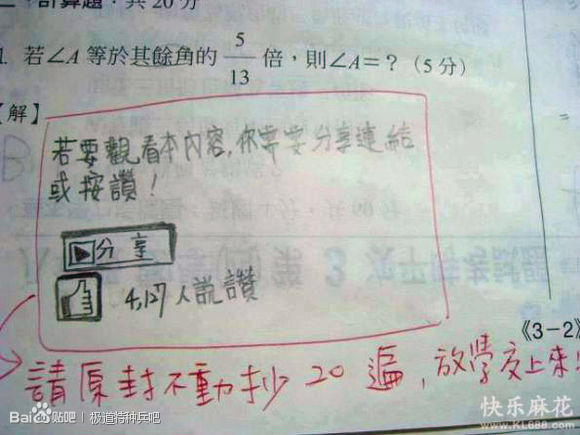 計算題：共20分
1. 若∠A 等於其餘角的 5/13 倍，則∠A＝？(5分)
【解】
若要觀看本內容,你需要分享連結
或按讚!
分享
4,127人說讚
《3-2》
請原封不動抄20遍,放學交上來
Bai百度贴吧 | 极道特种兵吧
快乐麻花
www.KL688.com